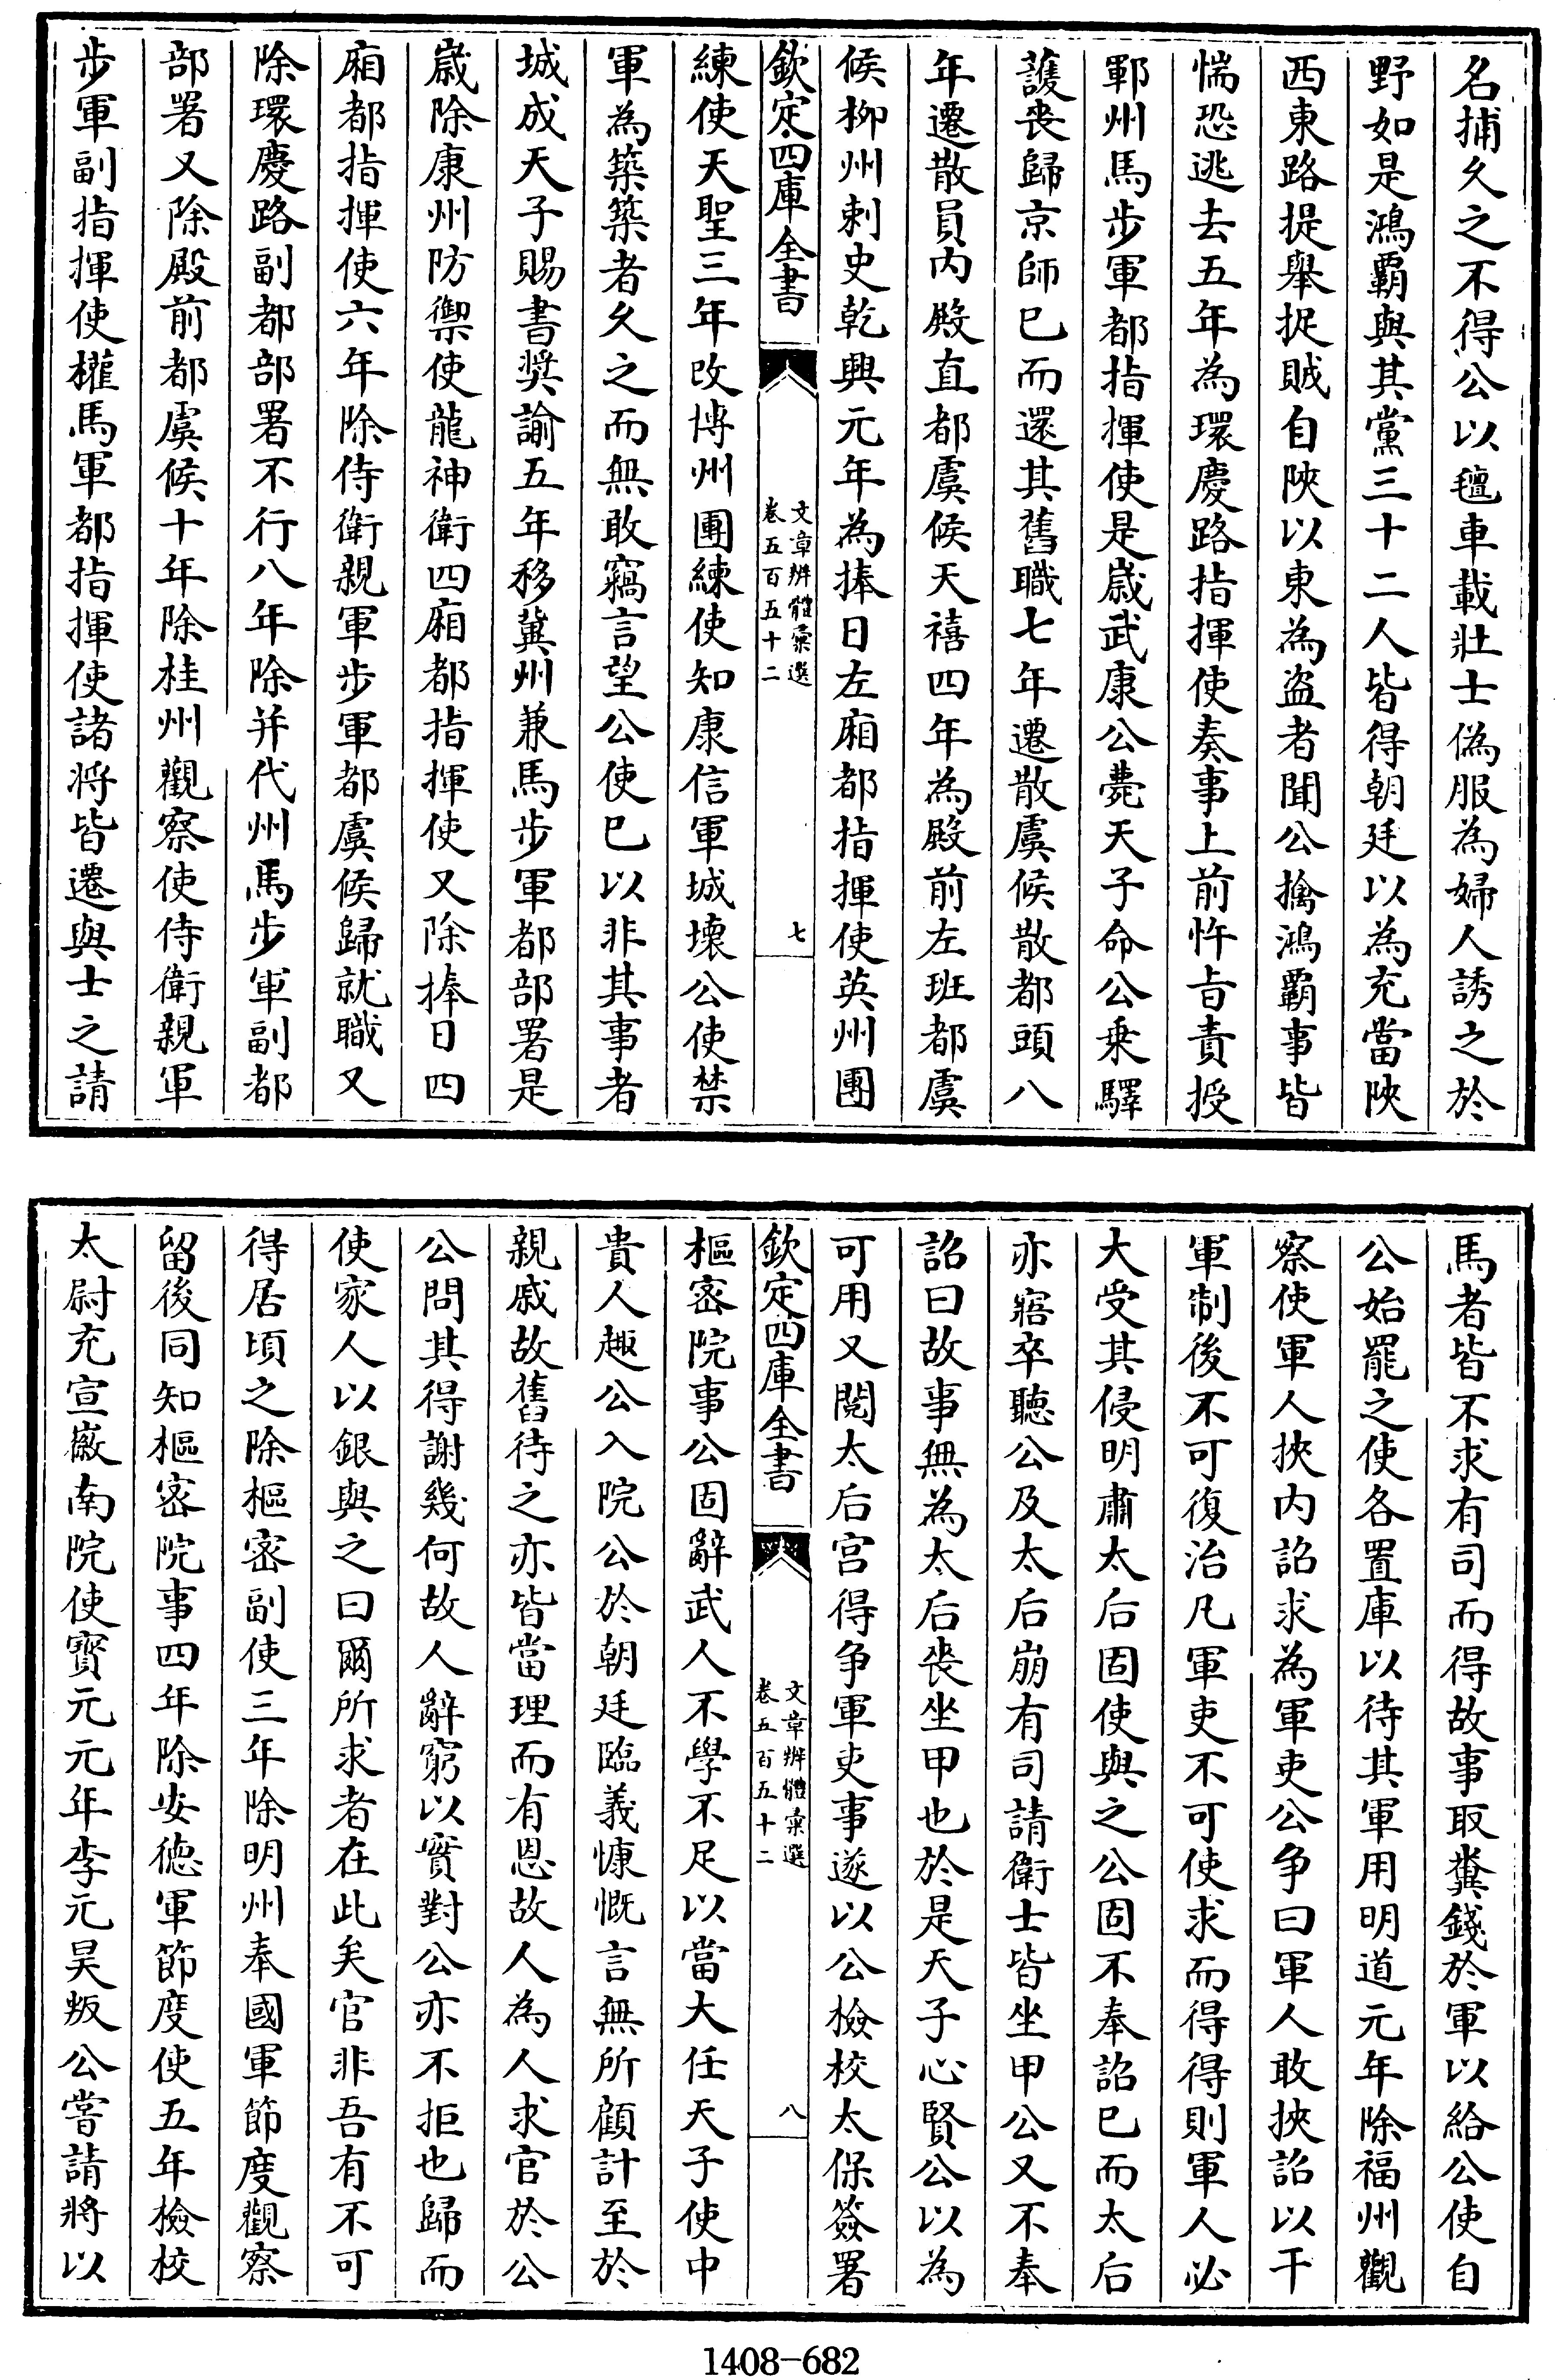 名捕久之不得公以氊車載壯士偽服為婦人誘之於
野如是鴻霸與其黨三十二人皆得朝廷以為充當陜
西東路提舉捉賊自陜以東為盗者聞公擒鴻霸事皆
惴恐逃去五年為環慶路指揮使奏事上前忤㫖責授
鄆州馬步軍都指揮使是歲武康公薨天子命公乗驛
護喪歸京師已而還其舊職七年遷散虞候散都頭八
年遷散員内殿直都虞候天禧四年為殿前左班都虞
候柳州刺史乾興元年為捧日左廂都指揮使英州團
欽定四庫全書
文章辨體彚選
卷五百五十二
七
練使天聖三年改博州團練使知康信軍城壊公使禁
軍為築築者久之而無敢竊言望公使已以非其事者
城成天子賜書奬諭五年移冀州兼馬步軍都部署是
歲除康州防禦使龍神衛四廂都指揮使又除捧日四
廂都指揮使六年除侍衛親軍步軍都虞候歸就職又
除環慶路副都部署不行八年除并代州馬步軍副都
部署又除殿前都虞候十年除桂州觀察使侍衛親軍
步軍副指揮使權馬軍都指揮使諸將皆遷與士之請
馬者皆不求有司而得故事取糞錢於軍以給公使自
公始罷之使各置庫以待其軍用明道元年除福州觀
察使軍人挾内詔求為軍吏公争曰軍人敢挾詔以干
軍制後不可復治凡軍吏不可使求而得得則軍人必
大受其侵明肅太后固使與之公固不奉詔已而太后
亦寤卒聽公及太后崩有司請衛士皆坐甲公又不奉
詔曰故事無為太后喪坐甲也於是天子心賢公以為
可用又閱太后宫得争軍吏事遂以公檢校太保簽署
欽定四庫全書
文章辨體彚選
卷五百五十二
八
樞密院事公固辭武人不學不足以當大任天子使中
貴人趣公入院公於朝廷臨義慷慨言無所顧計至於
親戚故舊待之亦皆當理而有恩故人為人求官於公
公問其得謝幾何故人辭窮以實對公亦不拒也歸而
使家人以銀與之曰爾所求者在此矣官非吾有不可
得居頃之除樞密副使三年除明州奉國軍節度觀察
留後同知樞密院事四年除安徳軍節度使五年檢校
太尉充宣徽南院使寶元元年李元昊叛公嘗請將以
1408-682